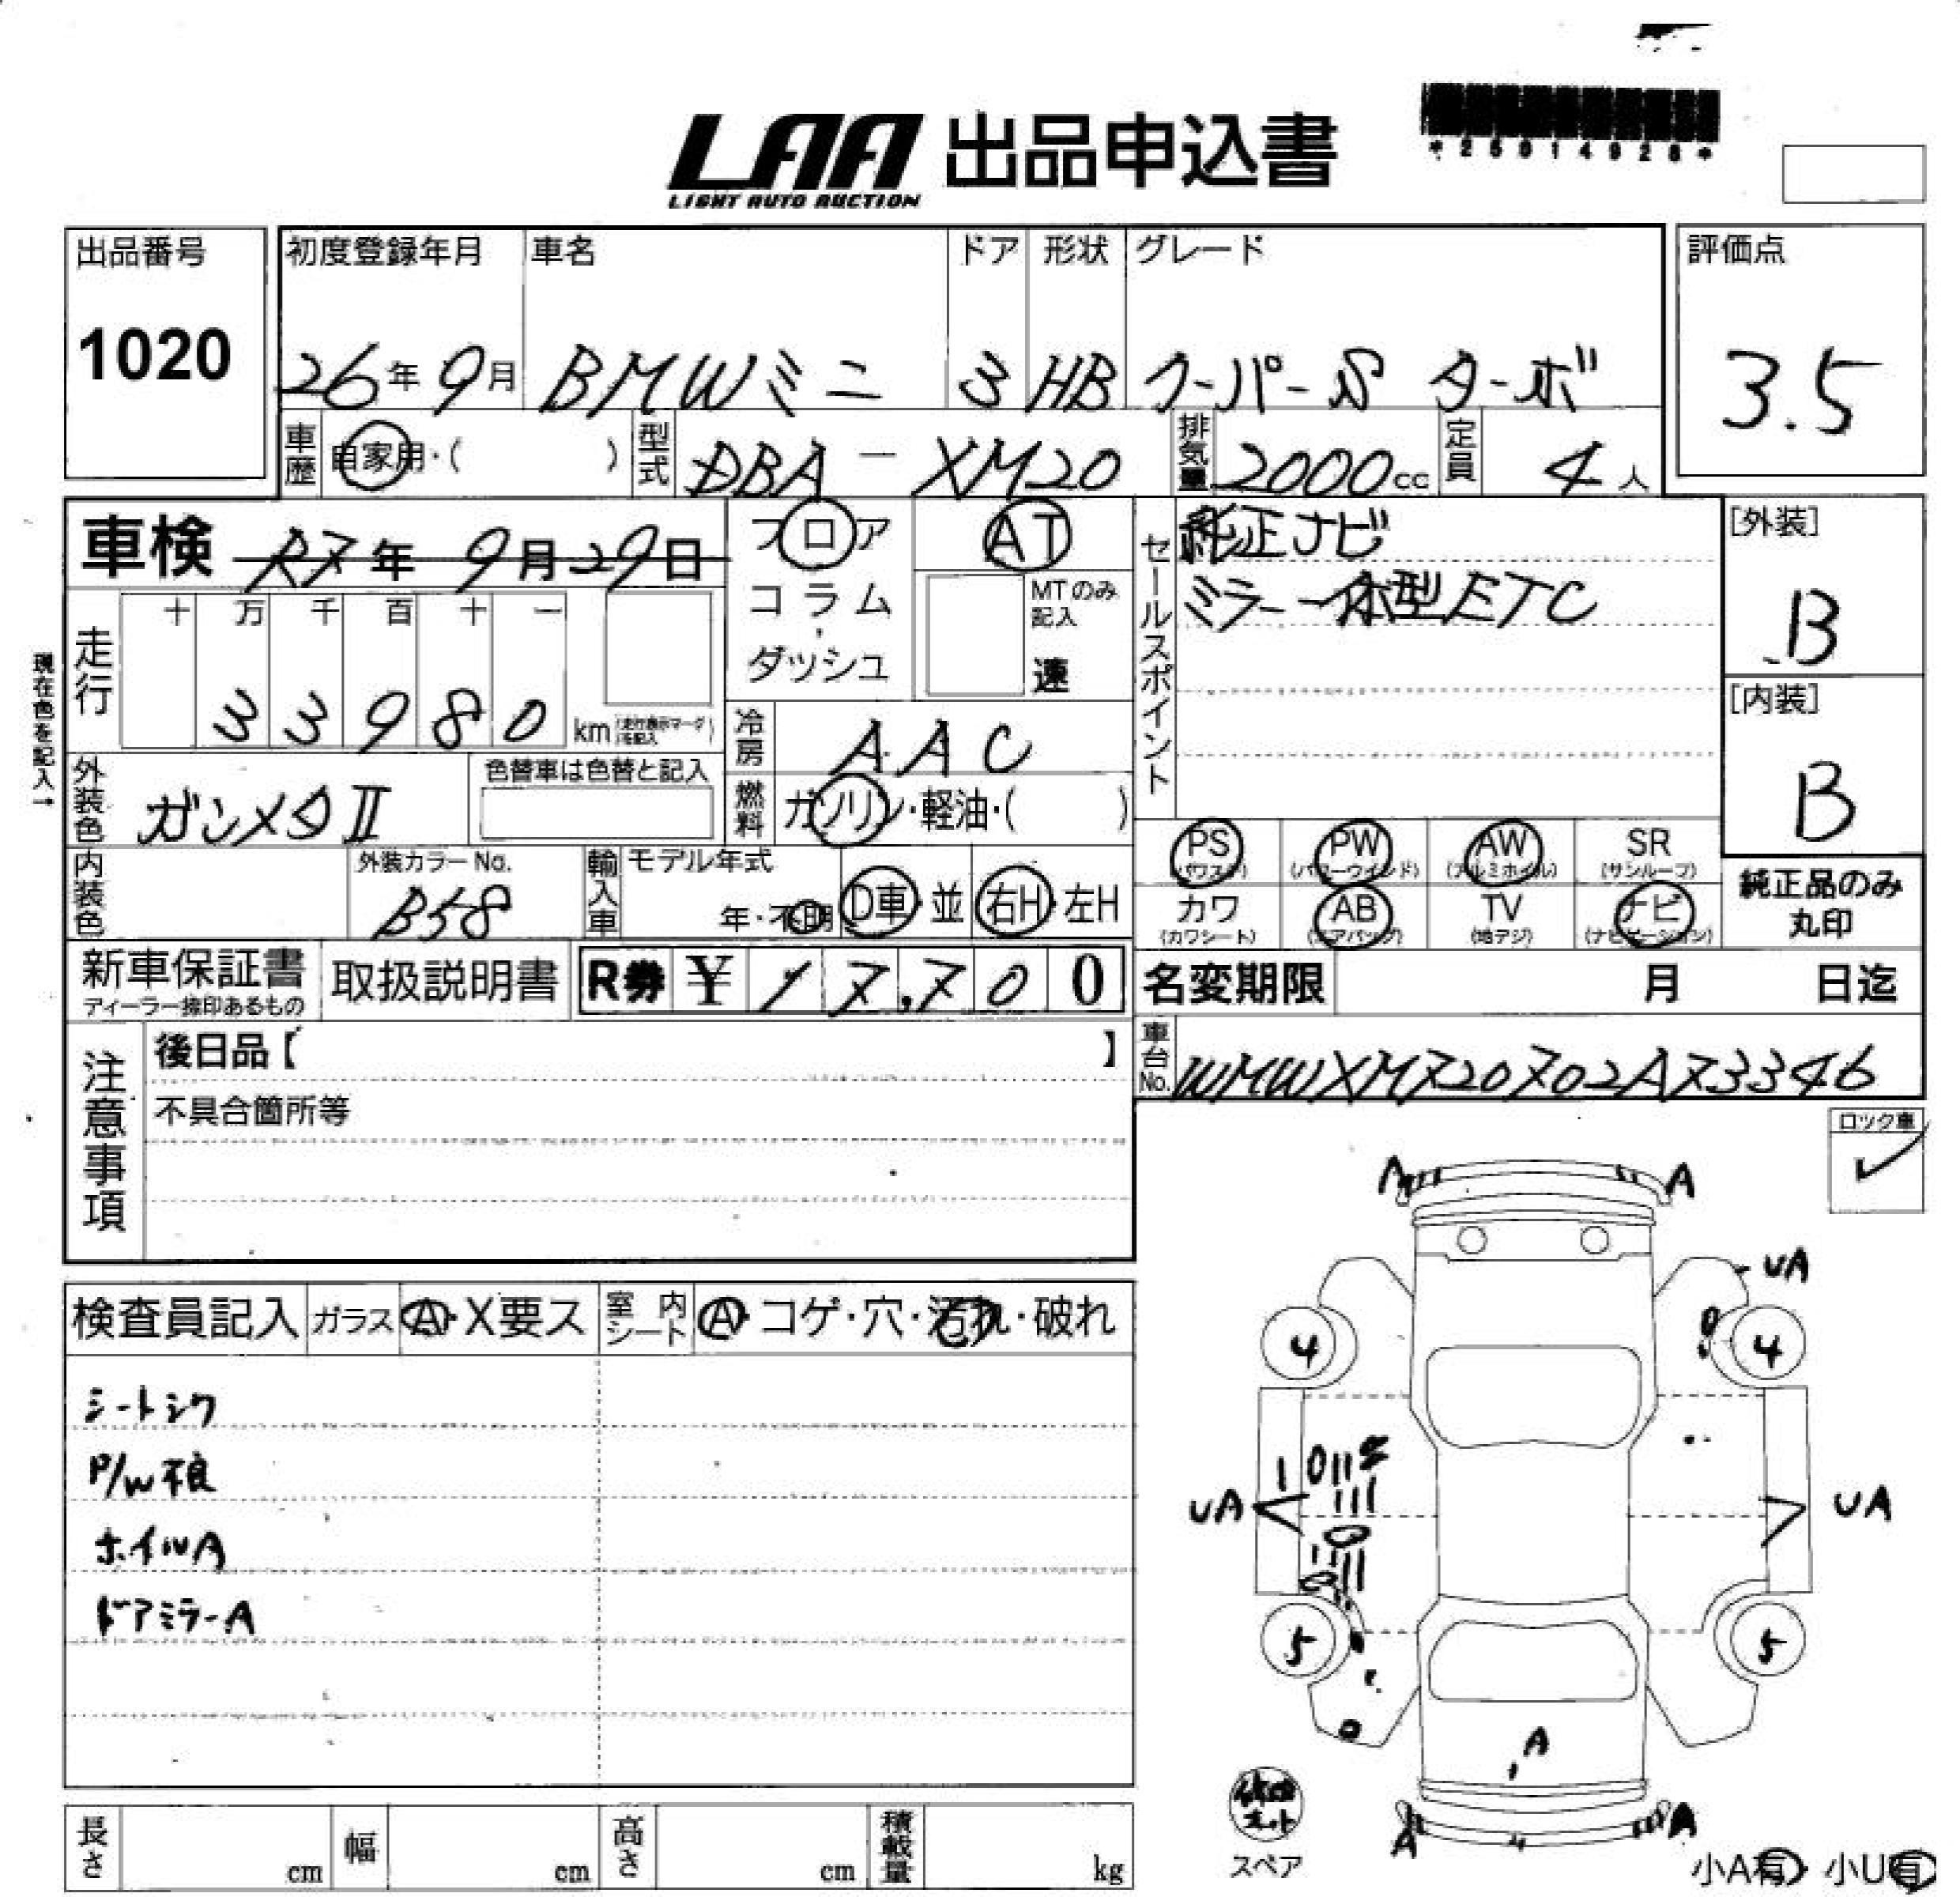 LAA 出品申込書
LIGHT AUTO AUCTION
*25014928*
出品番号
1020
初度登録年月 車名 ドア 形状 グレード
26年9月 BMWミニ 3 HB クーパーS ターボ
評価点
3.5
車歴 自家用・( ) 型式 DBA-XM20 排気量 2000cc 定員 4人
車検 R7年9月29日
フロア
コラム
ダッシュ
AT
MTのみ記入
速
走行 十 万 千 百 十 一
33980 km
現在色を記入→
外装色 ガンメタⅡ
色替車は色替と記入
冷房 AAC
燃料 ガソリン・軽油・( )
セールスポイント
純正ナビ
ミラー一体型ETC
[外装]
B
[内装]
B
内装色
外装カラーNo.
B58
輸入車 モデル年式
年・不明 D車・並 右H・左H
PS (パワステ) PW (パワーウインド) AW (アルミホイル) SR (サンルーフ)
カワ (カワシート) AB (エアバッグ) TV (地デジ) ナビ (ナビゲーション)
純正品のみ
丸印
新車保証書
ディーラー捺印あるもの
取扱説明書
R券 ¥17,700
名変期限 月 日迄
車台No. WMWXM720702A73346
注意事項
後日品【 】
不具合箇所等
ロック車
検査員記入 ガラス A・X要ス 室内シート A・コゲ・穴・汚れ・破れ
シートシワ
P/W不良
ホイルA
ドアミラーA
A A
UA
4 4
UA UA
5 5
A
A A
スペア
小A有 小U有
長さ cm 幅 cm 高さ cm 積載量 kg